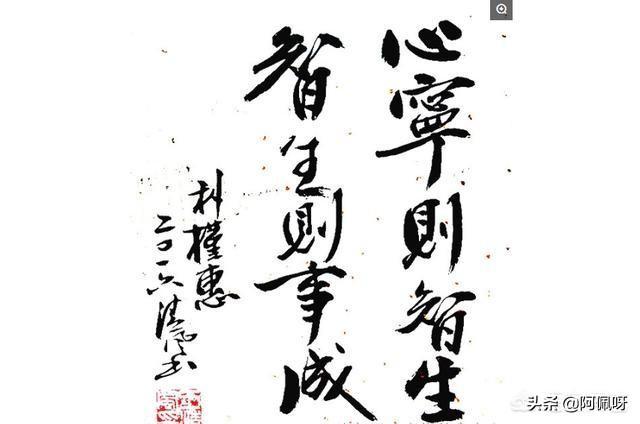 心寧則智生
智生則事成
朴槿惠
二〇一六
头条 @阿佩呀